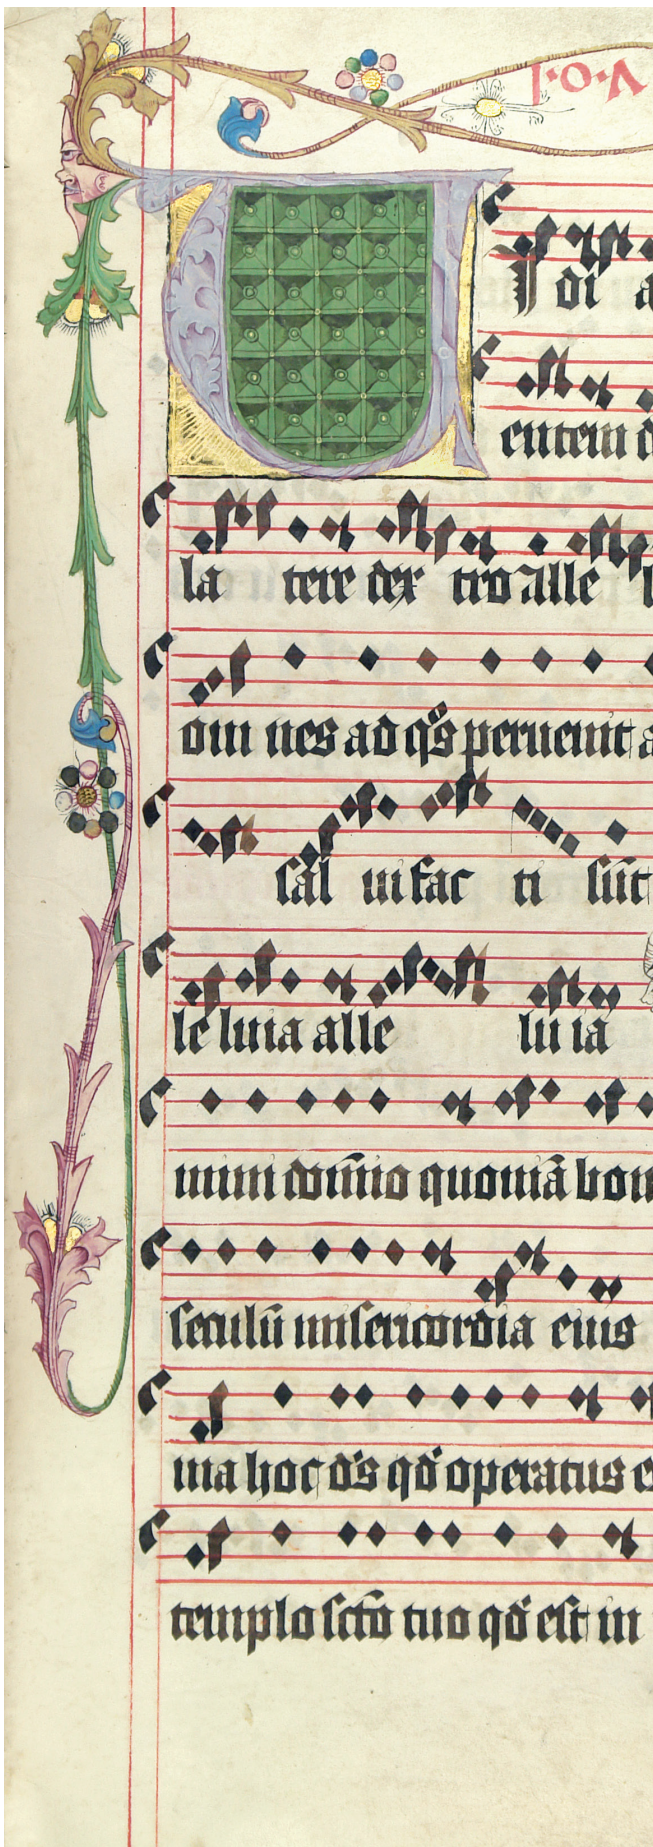 I·O·A
VI di a
entem d
la tere dex tro alle l
om nes ad q̄s peruenit a
sal ui fac ti sūt
le luia alle lu ia
mini domīo quoniā bon
seculū misericordia eius
uia hoc dn̄s qd̄ operatus e
templo scō tuo qd̄ est in